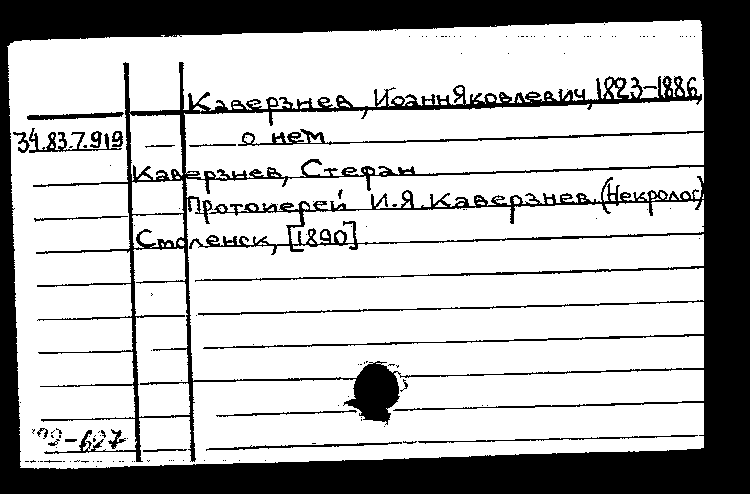 Каверзнев, Иоанн Яковлевич, 1823-1886,
34.83.7.919 о нем
Каверзнев, Стефан
Протоиерей И.Я. Каверзнев. (Некролог)
Смоленск, [1890]
99-627